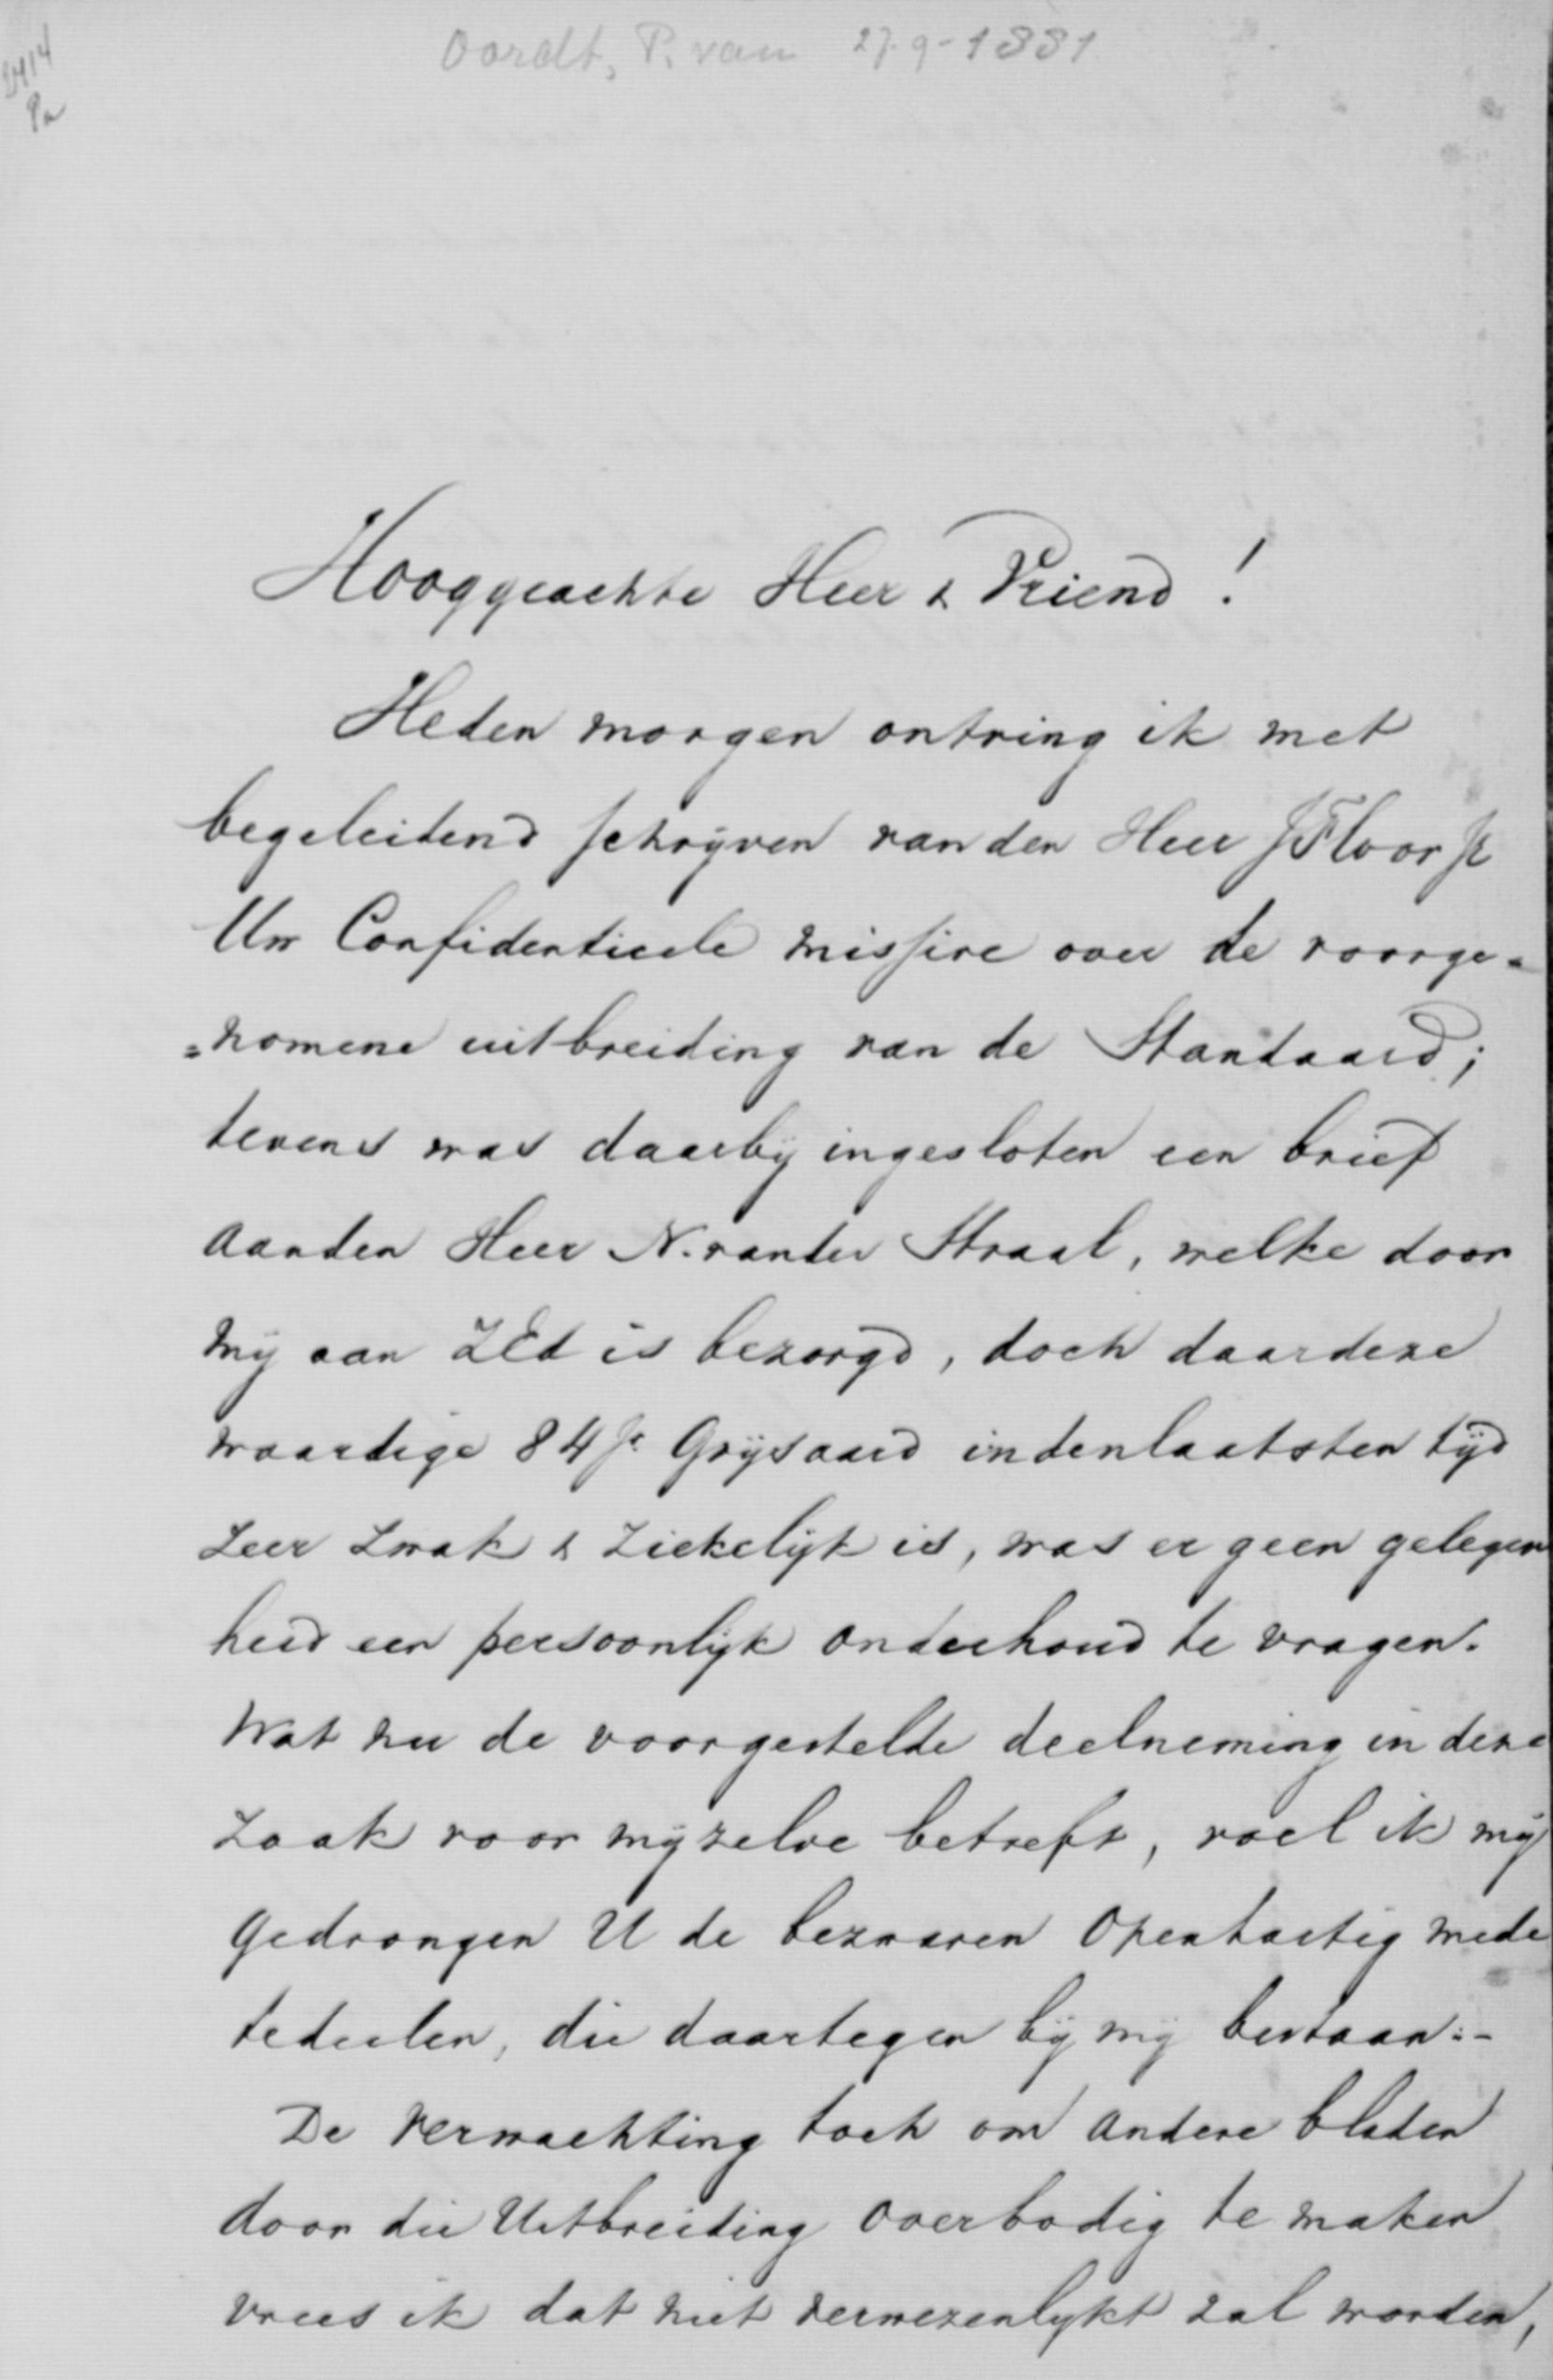 Oordt, P. van 27-9-1881
2414
Hooggeachte Heer & Vriend!
Heden morgen ontving ik met
begeleidend schrijven van den Heer J Floor Jr
Uw Confidentieele missive over de voorge=
=nomene uitbreiding van de Standaard;
tevens was daarbij ingesloten een brief
aanden Heer N. vander Straal, welke door
mij aan ZEd is bezorgd, doch daardeze
waardige 84 jr Grijsaard indenlaatsten tijd
zeer zwak & ziekelijk is, was er geen gelegen
heid een persoonlijk onderhoud te vragen.
Wat nu de voorgestelde deelneming in deze
zaak voor mijzelve betreft, voel ik mij
gedrongen U de bezwaren openhartig mede
tedeelen, die daartegen bij mij bestaan:-
De verwachting toch om andere bladen
door die Uitbreiding overbodig te maken
vrees ik dat niet verwezenlijkt zal worden,